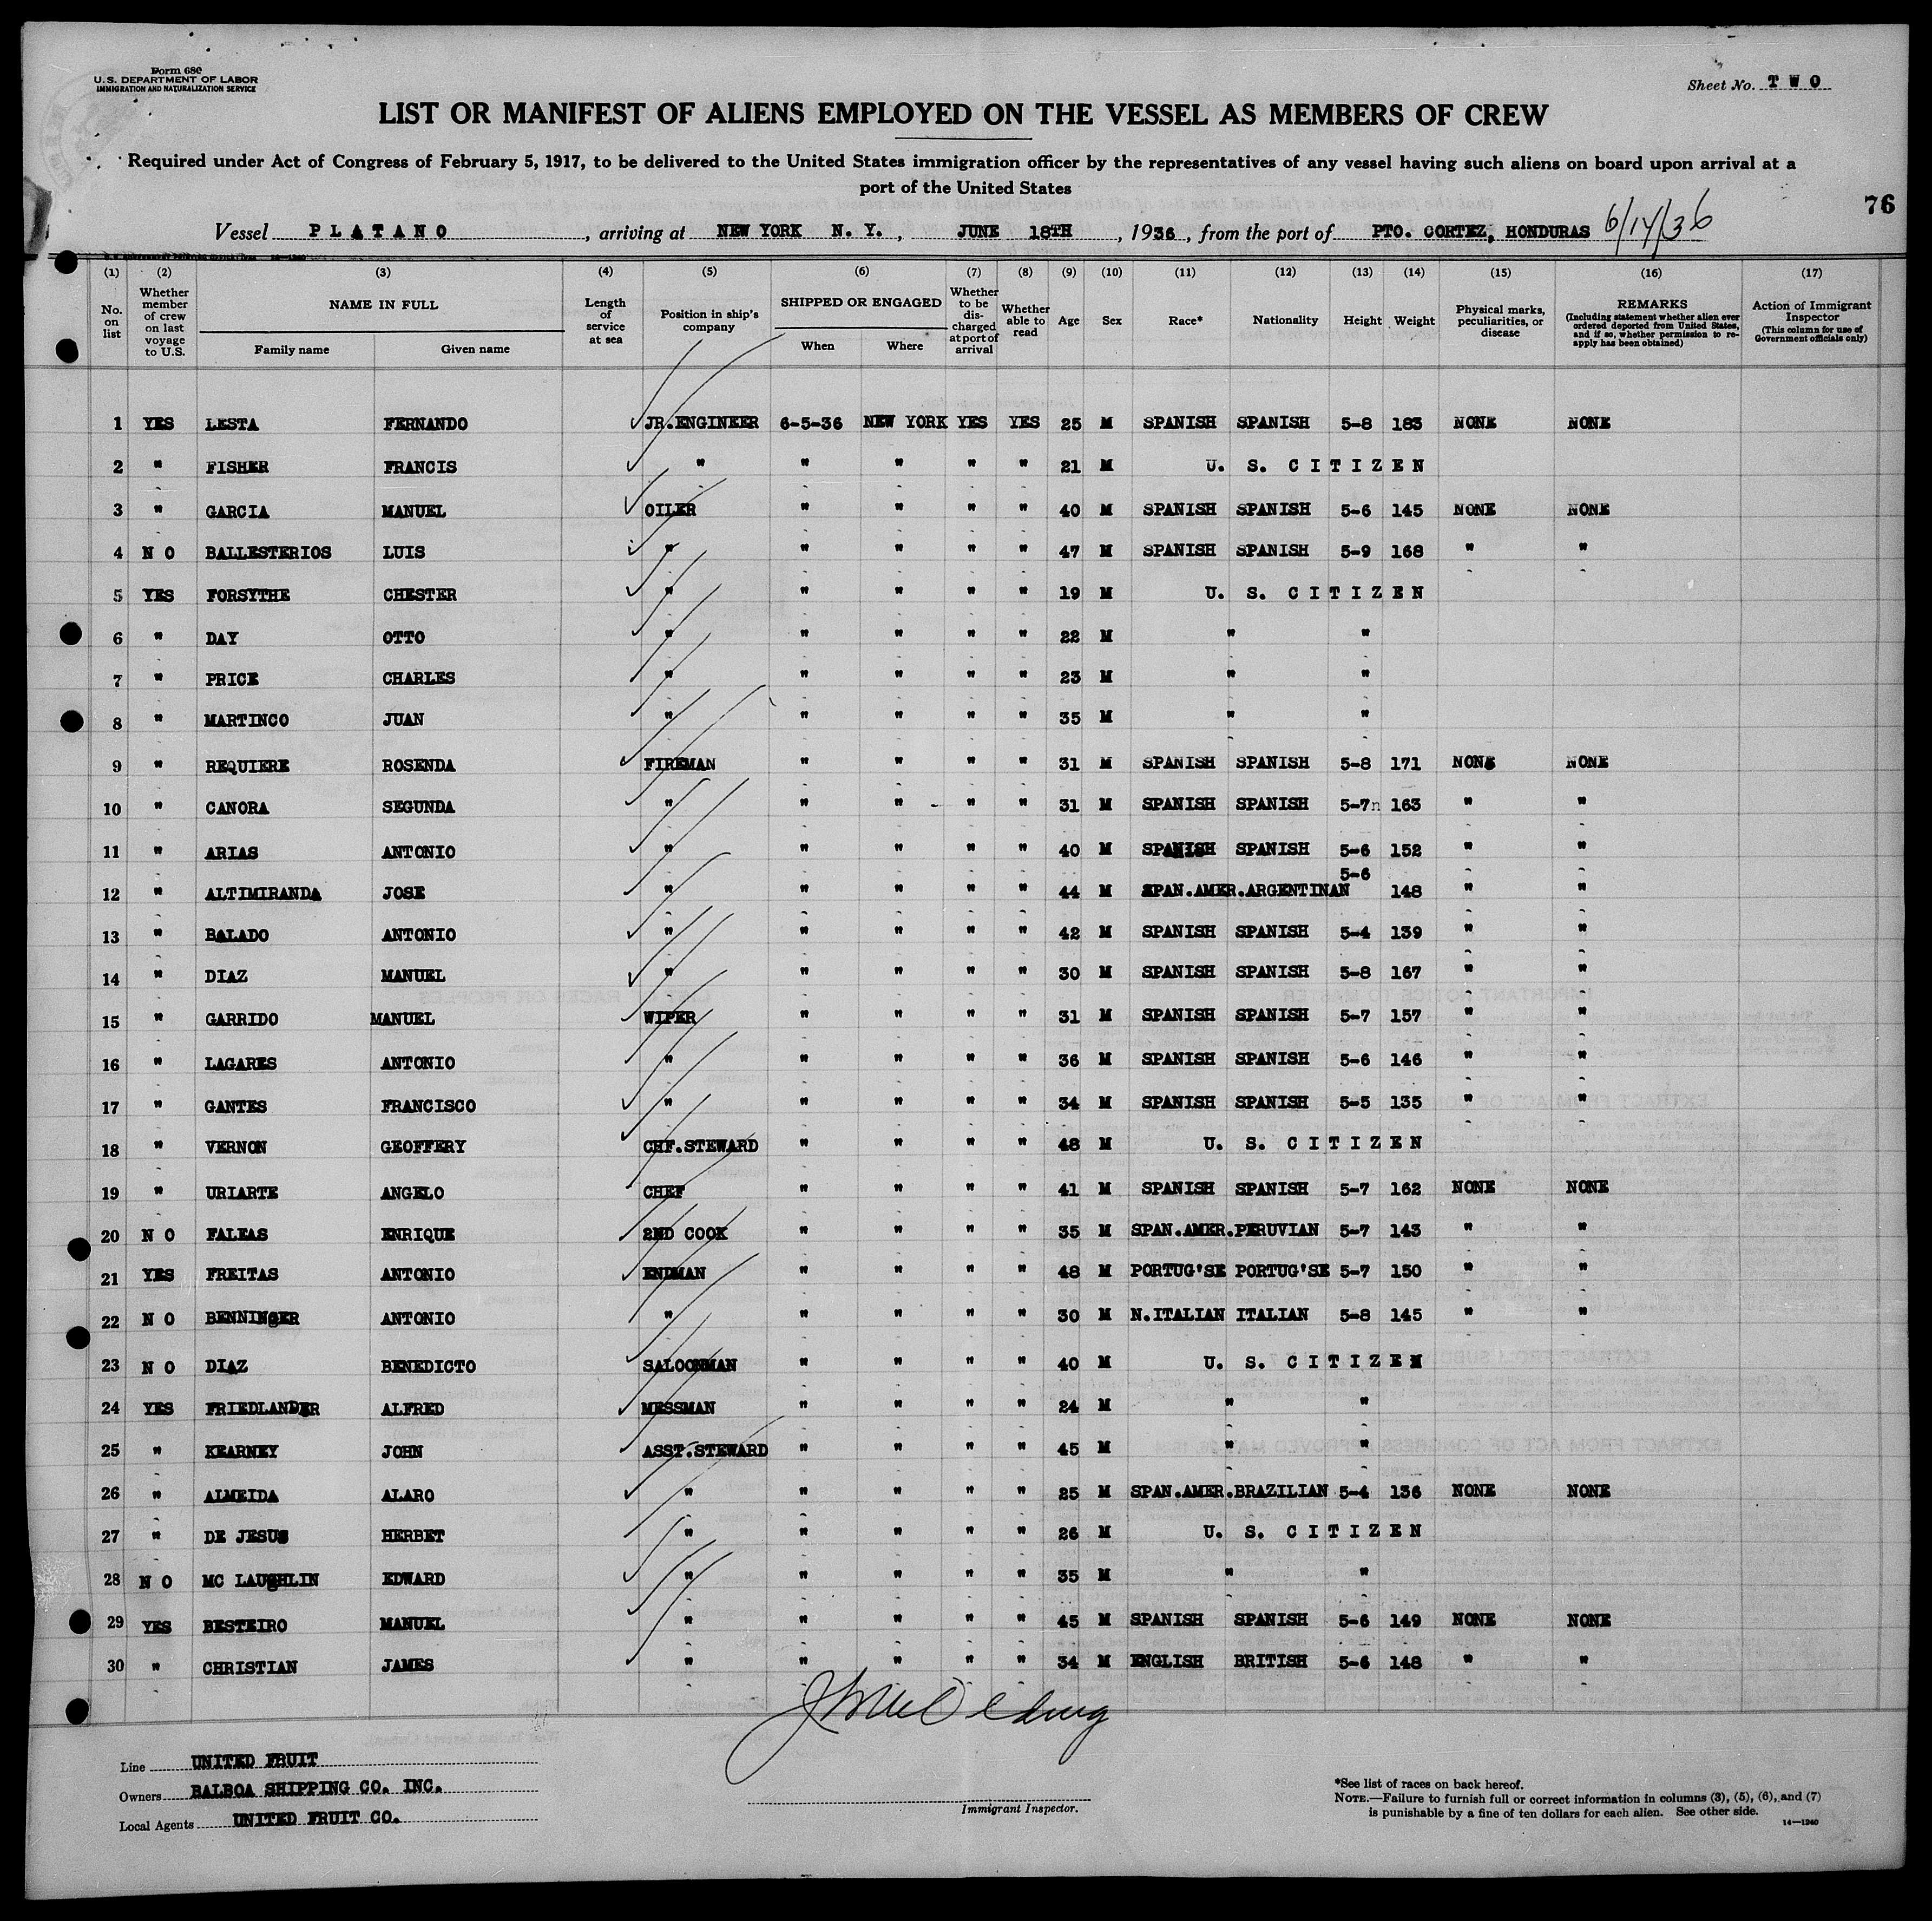 Form 680
U.S. DEPARTMENT OF LABOR
IMMIGRATION AND NATURALIZATION SERVICE
Sheet No. TWO
LIST OR MANIFEST OF ALIENS EMPLOYED ON THE VESSEL AS MEMBERS OF CREW
Required under Act of Congress of February 5, 1917, to be delivered to the United States immigration officer by the representatives of any vessel having such aliens on board upon arrival at a
port of the United States
76
Vessel PLATANO, arriving at NEW YORK N. Y., JUNE 18TH, 1936, from the port of PTO. CORTEZ, HONDURAS 6/14/36
(1) (2) (3) (4) (5) (6) (7) (8) (9) (10) (11) (12) (13) (14) (15) (16) (17)
No. on list | Whether member of crew on last voyage to U.S. | NAME IN FULL Family name Given name | Length of service at sea | Position in ship's company | SHIPPED OR ENGAGED When Where | Whether to be discharged at port of arrival | Whether able to read | Age | Sex | Race* | Nationality | Height | Weight | Physical marks, peculiarities, or disease | REMARKS (Including statement whether alien ever ordered deported from United States, and if so, whether permission to re-apply has been obtained) | Action of Immigrant Inspector (This column for use of Government officials only)
1 YES LESTA FERNANDO JR.ENGINEER 6-5-36 NEW YORK YES YES 25 M SPANISH SPANISH 5-8 183 NONE NONE
2 " FISHER FRANCIS " " " " " 21 M U. S. CITIZEN
3 " GARCIA MANUEL OILER " " " " 40 M SPANISH SPANISH 5-6 145 NONE NONE
4 NO BALLESTERIOS LUIS " " " " " 47 M SPANISH SPANISH 5-9 168 " "
5 YES FORSYTHE CHESTER " " " " " 19 M U. S. CITIZEN
6 " DAY OTTO " " " " " 22 M " "
7 " PRICE CHARLES " " " " " 23 M " "
8 " MARTINCO JUAN " " " " " 35 M " "
9 " REQUIERE ROSENDA FIREMAN " " " " 31 M SPANISH SPANISH 5-8 171 NONE NONE
10 " CANORA SEGUNDA " " " " " 31 M SPANISH SPANISH 5-7 163 " "
11 " ARIAS ANTONIO " " " " " 40 M SPANISH SPANISH 5-6 152 " "
12 " ALTIMIRANDA JOSE " " " " " 44 M SPAN.AMER.ARGENTINAN 5-6 148 " "
13 " BALADO ANTONIO " " " " " 42 M SPANISH SPANISH 5-4 139 " "
14 " DIAZ MANUEL " " " " " 30 M SPANISH SPANISH 5-8 167 " "
15 " GARRIDO MANUEL WIPER " " " " 31 M SPANISH SPANISH 5-7 157 " "
16 " LAGARES ANTONIO " " " " " 36 M SPANISH SPANISH 5-6 146 " "
17 " GANTES FRANCISCO " " " " " 34 M SPANISH SPANISH 5-5 135 " "
18 " VERNON GEOFFERY CHF.STEWARD " " " " 48 M U. S. CITIZEN
19 " URIARTE ANGELO CHEF " " " " 41 M SPANISH SPANISH 5-7 162 NONE NONE
20 NO FALEAS ENRIQUE 2ND COOK " " " " 35 M SPAN.AMER.PERUVIAN 5-7 143 " "
21 YES FREITAS ANTONIO ENDMAN " " " " 48 M PORTUG'SE PORTUG'SE 5-7 150 " "
22 NO BENNINGER ANTONIO " " " " " 30 M N.ITALIAN ITALIAN 5-8 145 " "
23 NO DIAZ BENEDICTO SALOONMAN " " " " 40 M U. S. CITIZEN
24 YES FRIEDLANDER ALFRED MESSMAN " " " " 24 M " "
25 " KEARNEY JOHN ASST.STEWARD " " " " 45 M " "
26 " ALMEIDA ALARO " " " " " 25 M SPAN.AMER.BRAZILIAN 5-4 136 NONE NONE
27 " DE JESUS HERBET " " " " " 26 M U. S. CITIZEN
28 NO MC LAUGHLIN EDWARD " " " " " 35 M " "
29 YES BESTEIRO MANUEL " " " " " 45 M SPANISH SPANISH 5-6 149 NONE NONE
30 " CHRISTIAN JAMES " " " " " 34 M ENGLISH BRITISH 5-6 148 " "
Line UNITED FRUIT
Owners BALBOA SHIPPING CO. INC.
Local Agents UNITED FRUIT CO.
Immigrant Inspector.
*See list of races on back hereof.
NOTE.—Failure to furnish full or correct information in columns (3), (5), (6), and (7)
is punishable by a fine of ten dollars for each alien. See other side.
14—1240